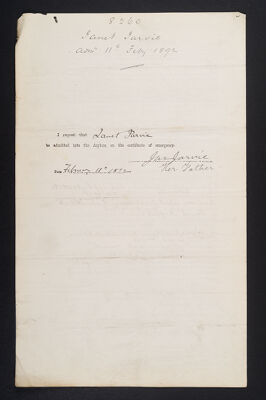 8360
Janet Jarvie
adm. 11th Feby 1892
I request that Janet Jarvie
be admitted into the Asylum on the certificate of emergency
Jas Jarvie
Date February 11th 1892
Her Father